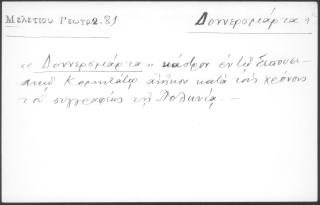 Μελετίου Γεωγρ. 81
Δοννερσμάρτα ἡ
« Δοννερσμάρτα » κάστρον ἐν τῷ Σεπουσι-
ακῷ Κομητάτῳ ἀνῆκον κατὰ τοὺς χρόνους
τοῦ συγγραφέως τῇ Πολωνίᾳ. —